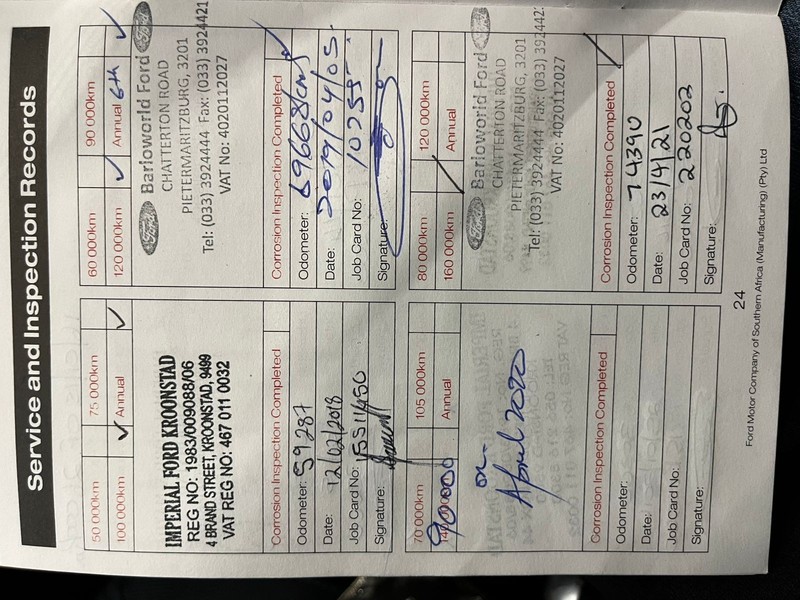 Service and Inspection Records
50 000km 75 000km
100 000km Annual
IMPERIAL FORD KROONSTAD
REG NO: 1983/009088/06
4 BRAND STREET, KROONSTAD, 9499
VAT REG NO: 467 011 0032
Corrosion Inspection Completed
Odometer: 59287
Date: 12/02/2018
Job Card No:
Signature:
60 000km 90 000km
120 000km Annual 6th
Ford Barloworld Ford Ford
CHATTERTON ROAD
PIETERMARITZBURG, 3201
Tel: (033) 3924444 Fax: (033) 3924421
VAT No: 4020112027
Corrosion Inspection Completed
Odometer: 69668/kms
Date: 2019/04/05
Job Card No: 10255
Signature:
70 000km 105 000km
Annual
90000
or
April 2020
Corrosion Inspection Completed
Odometer:
Date:
Job Card No:
Signature:
80 000km 120 000km
160 000km Annual
Ford Barloworld Ford
CHATTERTON ROAD
PIETERMARITZBURG, 3201
Tel: (033) 3924444 Fax: (033) 392442
VAT No: 4020112027
Corrosion Inspection Completed
Odometer: 74390
Date: 23/4/21
Job Card No: 220202
Signature:
24
Ford Motor Company of Southern Africa (Manufacturing) (Pty) Ltd